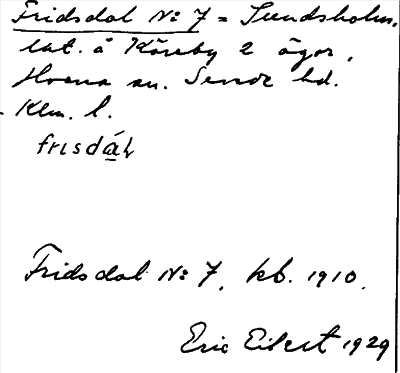 Fridsdal No 7 = Sundsholm,
lät. å Köreby 2 ägor,
Hvena sn. Sevede hd.
Klm. l.
frɩsdáʟ
Fridsdal No 7, kb. 1910.
Eric Eilert 1929